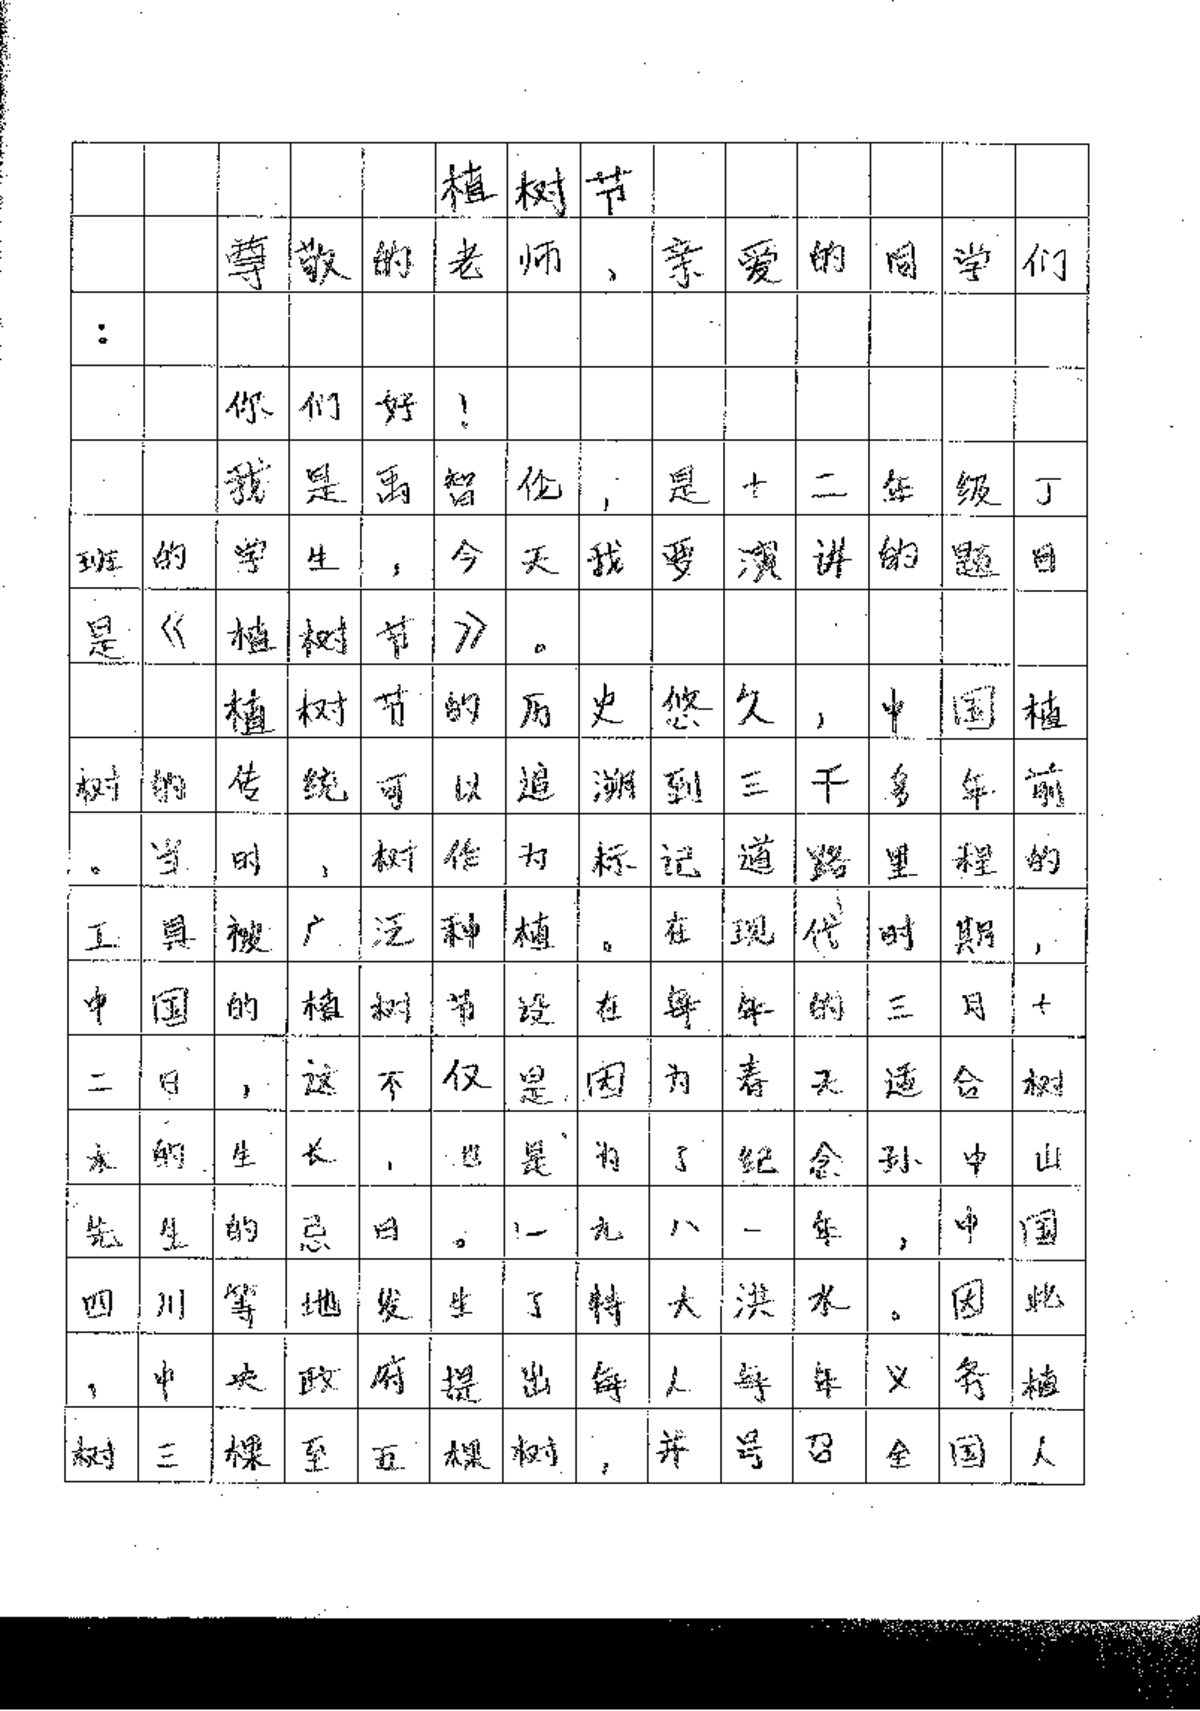 植树节
尊敬的老师，亲爱的同学们
：
你们好！
我是禹智伦，是十二年级丁
班的学生，今天我要演讲的题目
是《植树节》。
植树节的历史悠久，中国植
树的传统可以追溯到三千多年前
。当时，树作为标记道路里程的
工具被广泛种植。在现代时期，
中国的植树节设在每年的三月十
二日，这不仅是因为春天适合树
木的生长，也是为了纪念孙中山
先生的忌日。一九八一年，中国
四川等地发生了特大洪水。因此
，中央政府提出每人每年义务植
树三棵至五棵树，并号召全国人